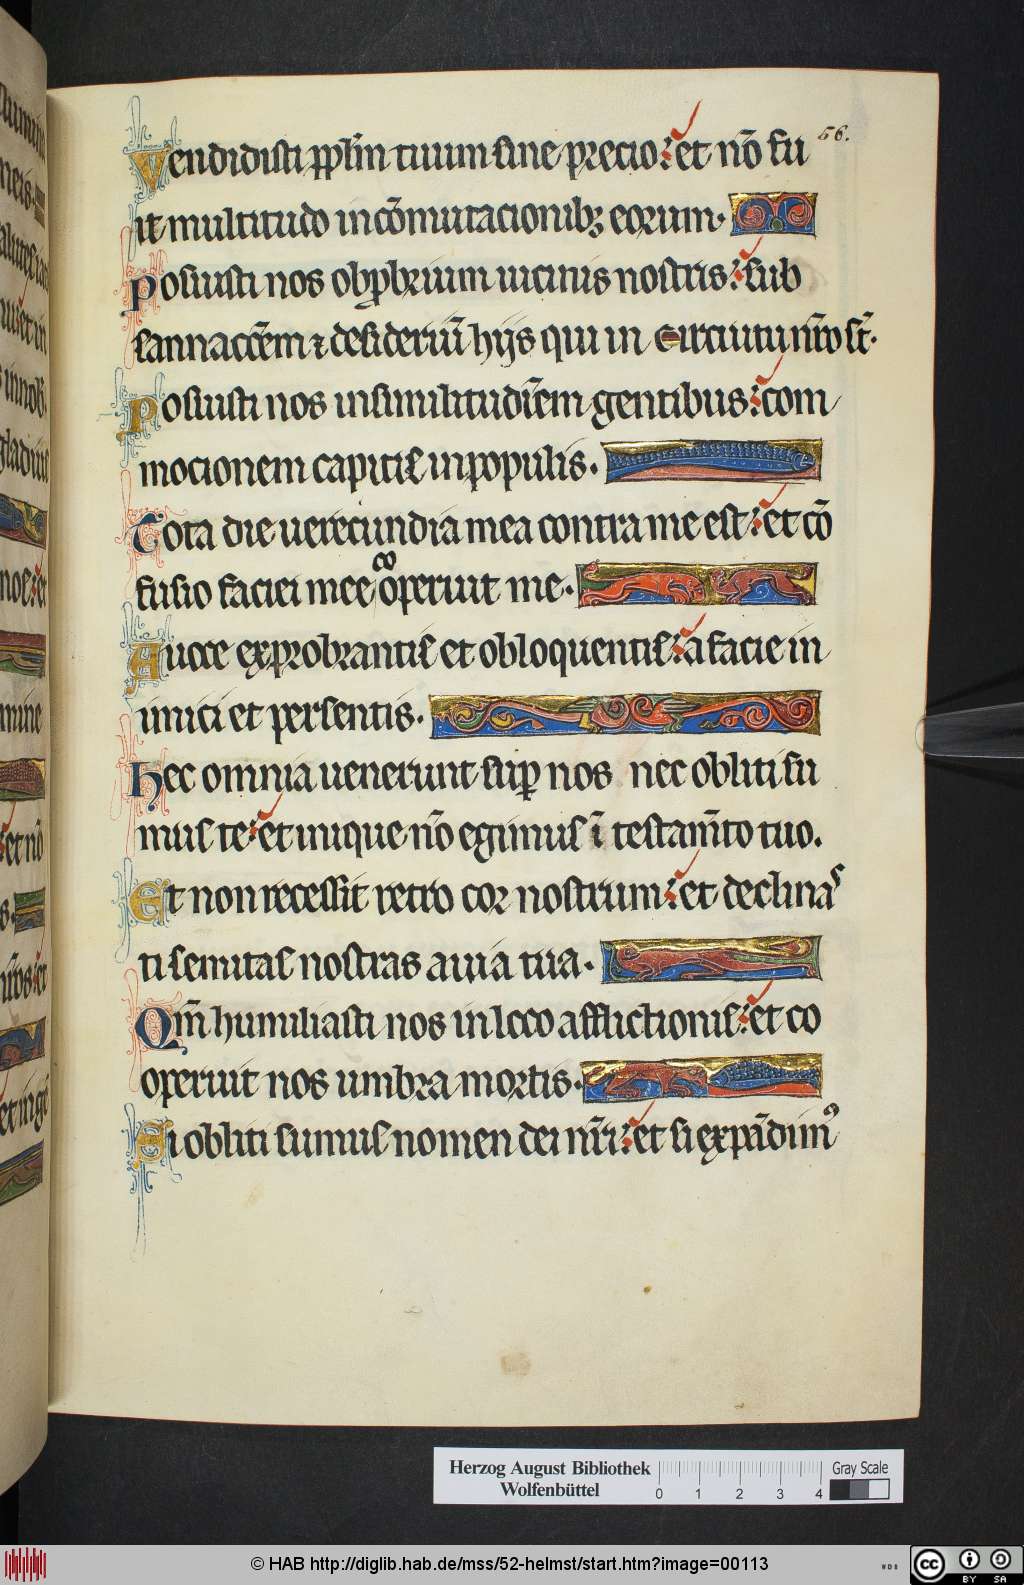 56.
Vendidisti ppl̄m tuum sine precio: et nō fu
it multitudo in cōmutacionibꝫ eorum.
Posuisti nos obꝓbrium uicinis nostris: sub
sannaccēm ⁊ desideriū hijs qui in circuitu nr̄o st̄.
Posuisti nos in similitudīem gentibus: com
mocionem capitis in populis.
Tota die uerecundia mea contra me est: et cō
fusio faciei mee cooperuit me.
A uoce exprobrantis et obloquentis: a facie in
imici et persentis.
Hec omnia uenerunt suꝑ nos nec obliti su
mus te: et inique nō egimus ī testam̄to tuo.
Et non recessit retro cor nostrum: et declinas
ti semitas nostras a uia tua.
Qm̄ humiliasti nos in loco afflictionis: et co
operuit nos umbra mortis.
Si obliti sumus nomen dei nr̄i: et si expādimꝰ
neis.
et in
gladiū
mine
et nō
Herzog August Bibliothek
Wolfenbüttel
0 1 2 3 4
Gray Scale
© HAB http://diglib.hab.de/mss/52-helmst/start.htm?image=00113
cc BY SA